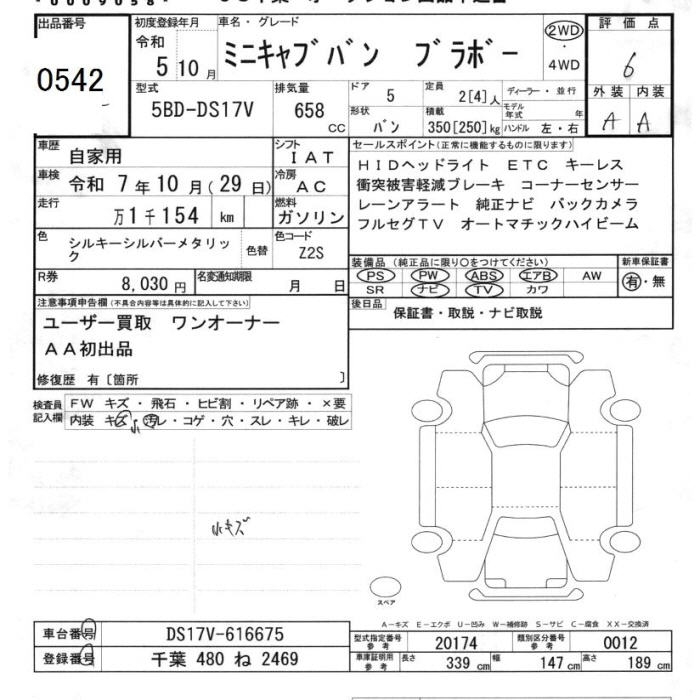 出品番号
0542
初度登録年月
令和
5年10月
車名・グレード
ミニキャブバン ブラボー
2WD
・
4WD
評価点
6
外装 内装
A A
型式
5BD-DS17V
排気量
658
CC
ドア
5
定員
2[4]人
形状
バン
積載
350[250]kg
ディーラー・並行
モデル年式 年
ハンドル 左・右
車歴
自家用
シフト
IAT
車検
令和 7年10月(29日)
冷房
AC
走行
万1千154 km
燃料
ガソリン
色
シルキーシルバーメタリック
色替
色コード
Z2S
R券
8,030円
名変通知期限
月 日
セールスポイント(正常に機能するものに限ります)
HIDヘッドライト ETC キーレス
衝突被害軽減ブレーキ コーナーセンサー
レーンアラート 純正ナビ バックカメラ
フルセグTV オートマチックハイビーム
装備品(純正品に限り○をつけてください)
PS PW ABS エアB AW
SR ナビ TV カワ
新車保証書
有・無
後日品
保証書・取説・ナビ取説
注意事項申告欄(不具合内容等は具体的に記入して下さい)
ユーザー買取 ワンオーナー
AA初出品
修復歴 有〔箇所 〕
検査員
記入欄
FW キズ・飛石・ヒビ割・リペア跡・×要
内装 キズ・汚レ・コゲ・穴・スレ・キレ・破レ
小
小キズ
スペア
A－キズ E－エクボ U－凹み W－補修跡 S－サビ C－腐食 XX－交換済
車台番号
DS17V-616675
登録番号
千葉 480 ね 2469
型式指定番号
参考
20174
類別区分番号
参考
0012
車庫証明用
参考
長さ 339 cm 幅 147 cm 高さ 189 cm